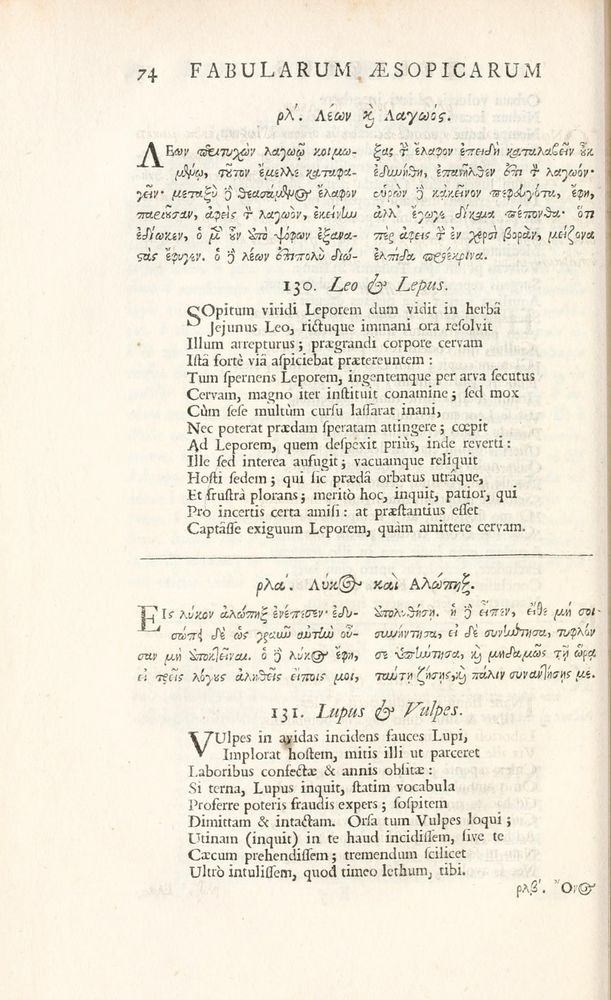 74 FABULARUM ÆSOPICARUM
ρλʹ. Λέων ϗ Λαγωός.
ΛΕων πειτυχὼν λαγωῷ κοιμω-
μένῳ, τοῦτον ἔμελλε καταφα-
γεῖν· μεταξὺ δὲ θεασάμενος ἔλαφον
παριοῦσαν, ἀφεὶς τὸν λαγωὸν, ἐκείνην
ἐδίωκεν, ὁ μὲν οὖν ὑπὸ ψόφων ἐξανα-
στὰς ἔφυγεν. ὁ δὲ λέων ἐπιπολὺ διώ-
ξας τὴν ἔλαφον ἐπειδὴ καταλαβεῖν οὐκ
ἐδυνήθη, ἐπανῆλθεν ἐπὶ τὸν λαγωόν·
εὑρὼν δὲ κἀκεῖνον πεφευγότα, ἔφη,
ἀλλ' ἔγωγε δίκαια πέπονθα· ὅτι
περ ἀφεὶς τὴν ἐν χερσὶ βορὰν, μείζονα
ἐλπίδα προέκρινα.
130. Leo & Lepus.
SOpitum viridi Leporem dum vidit in herbâ
Jejunus Leo, rictuque immani ora resolvit
Illum arrepturus; prægrandi corpore cervam
Istâ fortè viâ aspiciebat prætereuntem:
Tum spernens Leporem, ingentemque per arva secutus
Cervam, magno iter instituit conamine; sed mox
Cùm sese multùm cursu lassarat inani,
Nec poterat prædam speratam attingere; cœpit
Ad Leporem, quem despexit priùs, inde reverti:
Ille sed interea aufugit; vacuamque reliquit
Hosti sedem; qui sic prædâ orbatus utrâque,
Et frustrà plorans; meritò hoc, inquit, patior, qui
Pro incertis certa amisi: at præstantius esset
Captâsse exiguum Leporem, quàm amittere cervam.
ρλαʹ. Λύκος καὶ Αλώπηξ.
ΕΙς λύκον ἀλώπηξ ἐνέπεσεν· ἐδυ-
σώπει δὲ ὡς γραῦν αὐτὴν οὖ-
σαν μὴ ἀποκτεῖναι. ὁ δὲ λύκος ἔφη,
εἰ τρεῖς λόγους ἀληθεῖς εἴποις μοι,
ἀπολυθήσῃ. ἡ δὲ εἶπεν, εἴθε μή σοι
συνήντησα, εἰ δὲ συνήντησα, τυφλόν
σε ὑπήντησα, ϗ μηδαμῶς τῇ ὥρᾳ
ταύτῃ ζήσῃς, ϗ πάλιν συναντήσῃς με.
131. Lupus & Vulpes.
VUlpes in avidas incidens fauces Lupi,
Implorat hostem, mitis illi ut parceret
Laboribus confectæ & annis obsitæ:
Si terna, Lupus inquit, statim vocabula
Proferre poteris fraudis expers; sospitem
Dimittam & intactam. Orsa tum Vulpes loqui;
Utinam (inquit) in te haud incidissem, sive te
Cæcum prehendissem; tremendum scilicet
Ultrò intulissem, quod timeo lethum, tibi.
ρλβʹ. Ὄνος